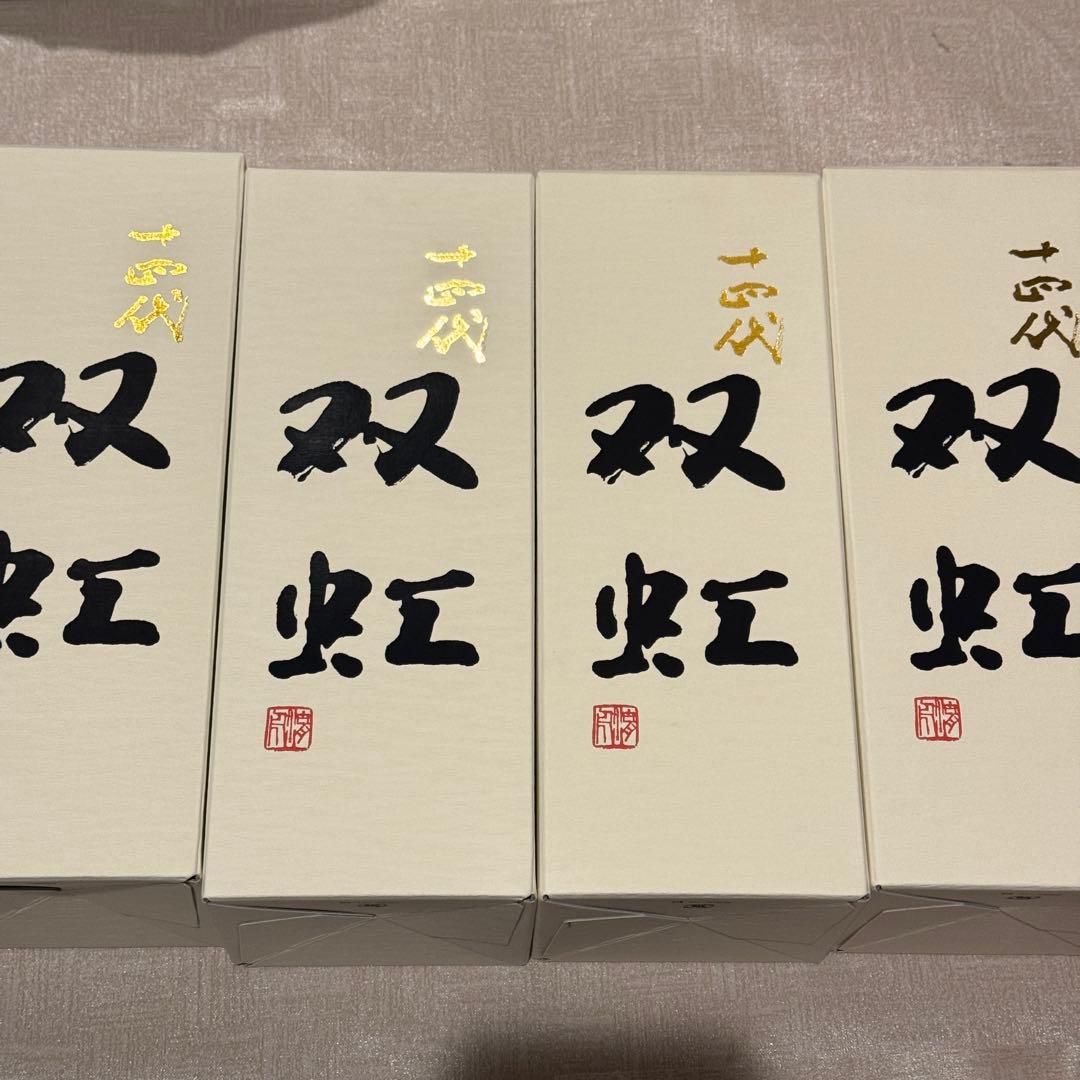 十四代
双虹
十四代
双虹
十四代
双虹
十四代
双虹